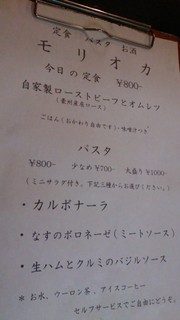 定食 パスタ お酒
モリオカ
今日の定食 ¥800-
自家製ローストビーフとオムレツ
ごはん(おかわり自由です)・味噌汁つき
パスタ
¥800- 少なめ¥700- 大盛り¥1000-
(ミニサラダ付き。下記三種からお選びください。)
・カルボナーラ
・なすのボロネーゼ(ミートソース)
・生ハムとクルミのバジルソース
* お水、ウーロン茶、アイスコーヒー
セルフサービスでご自由にどうぞ。